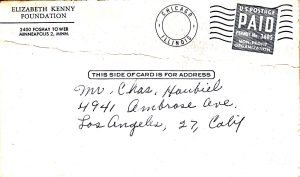 ELIZABETH KENNY
FOUNDATION
2400 FOSHAY TOWER
MINNEAPOLIS 2, MINN.
CHICAGO
ILLINOIS
U.S. POSTAGE
PAID
PERMIT No. 3405
NON-PROFIT
ORGANIZATION
THIS SIDE OF CARD IS FOR ADDRESS
Mr. Chas. Haubiel
4941 Ambrose Ave.
Los Angeles, 27, Calif